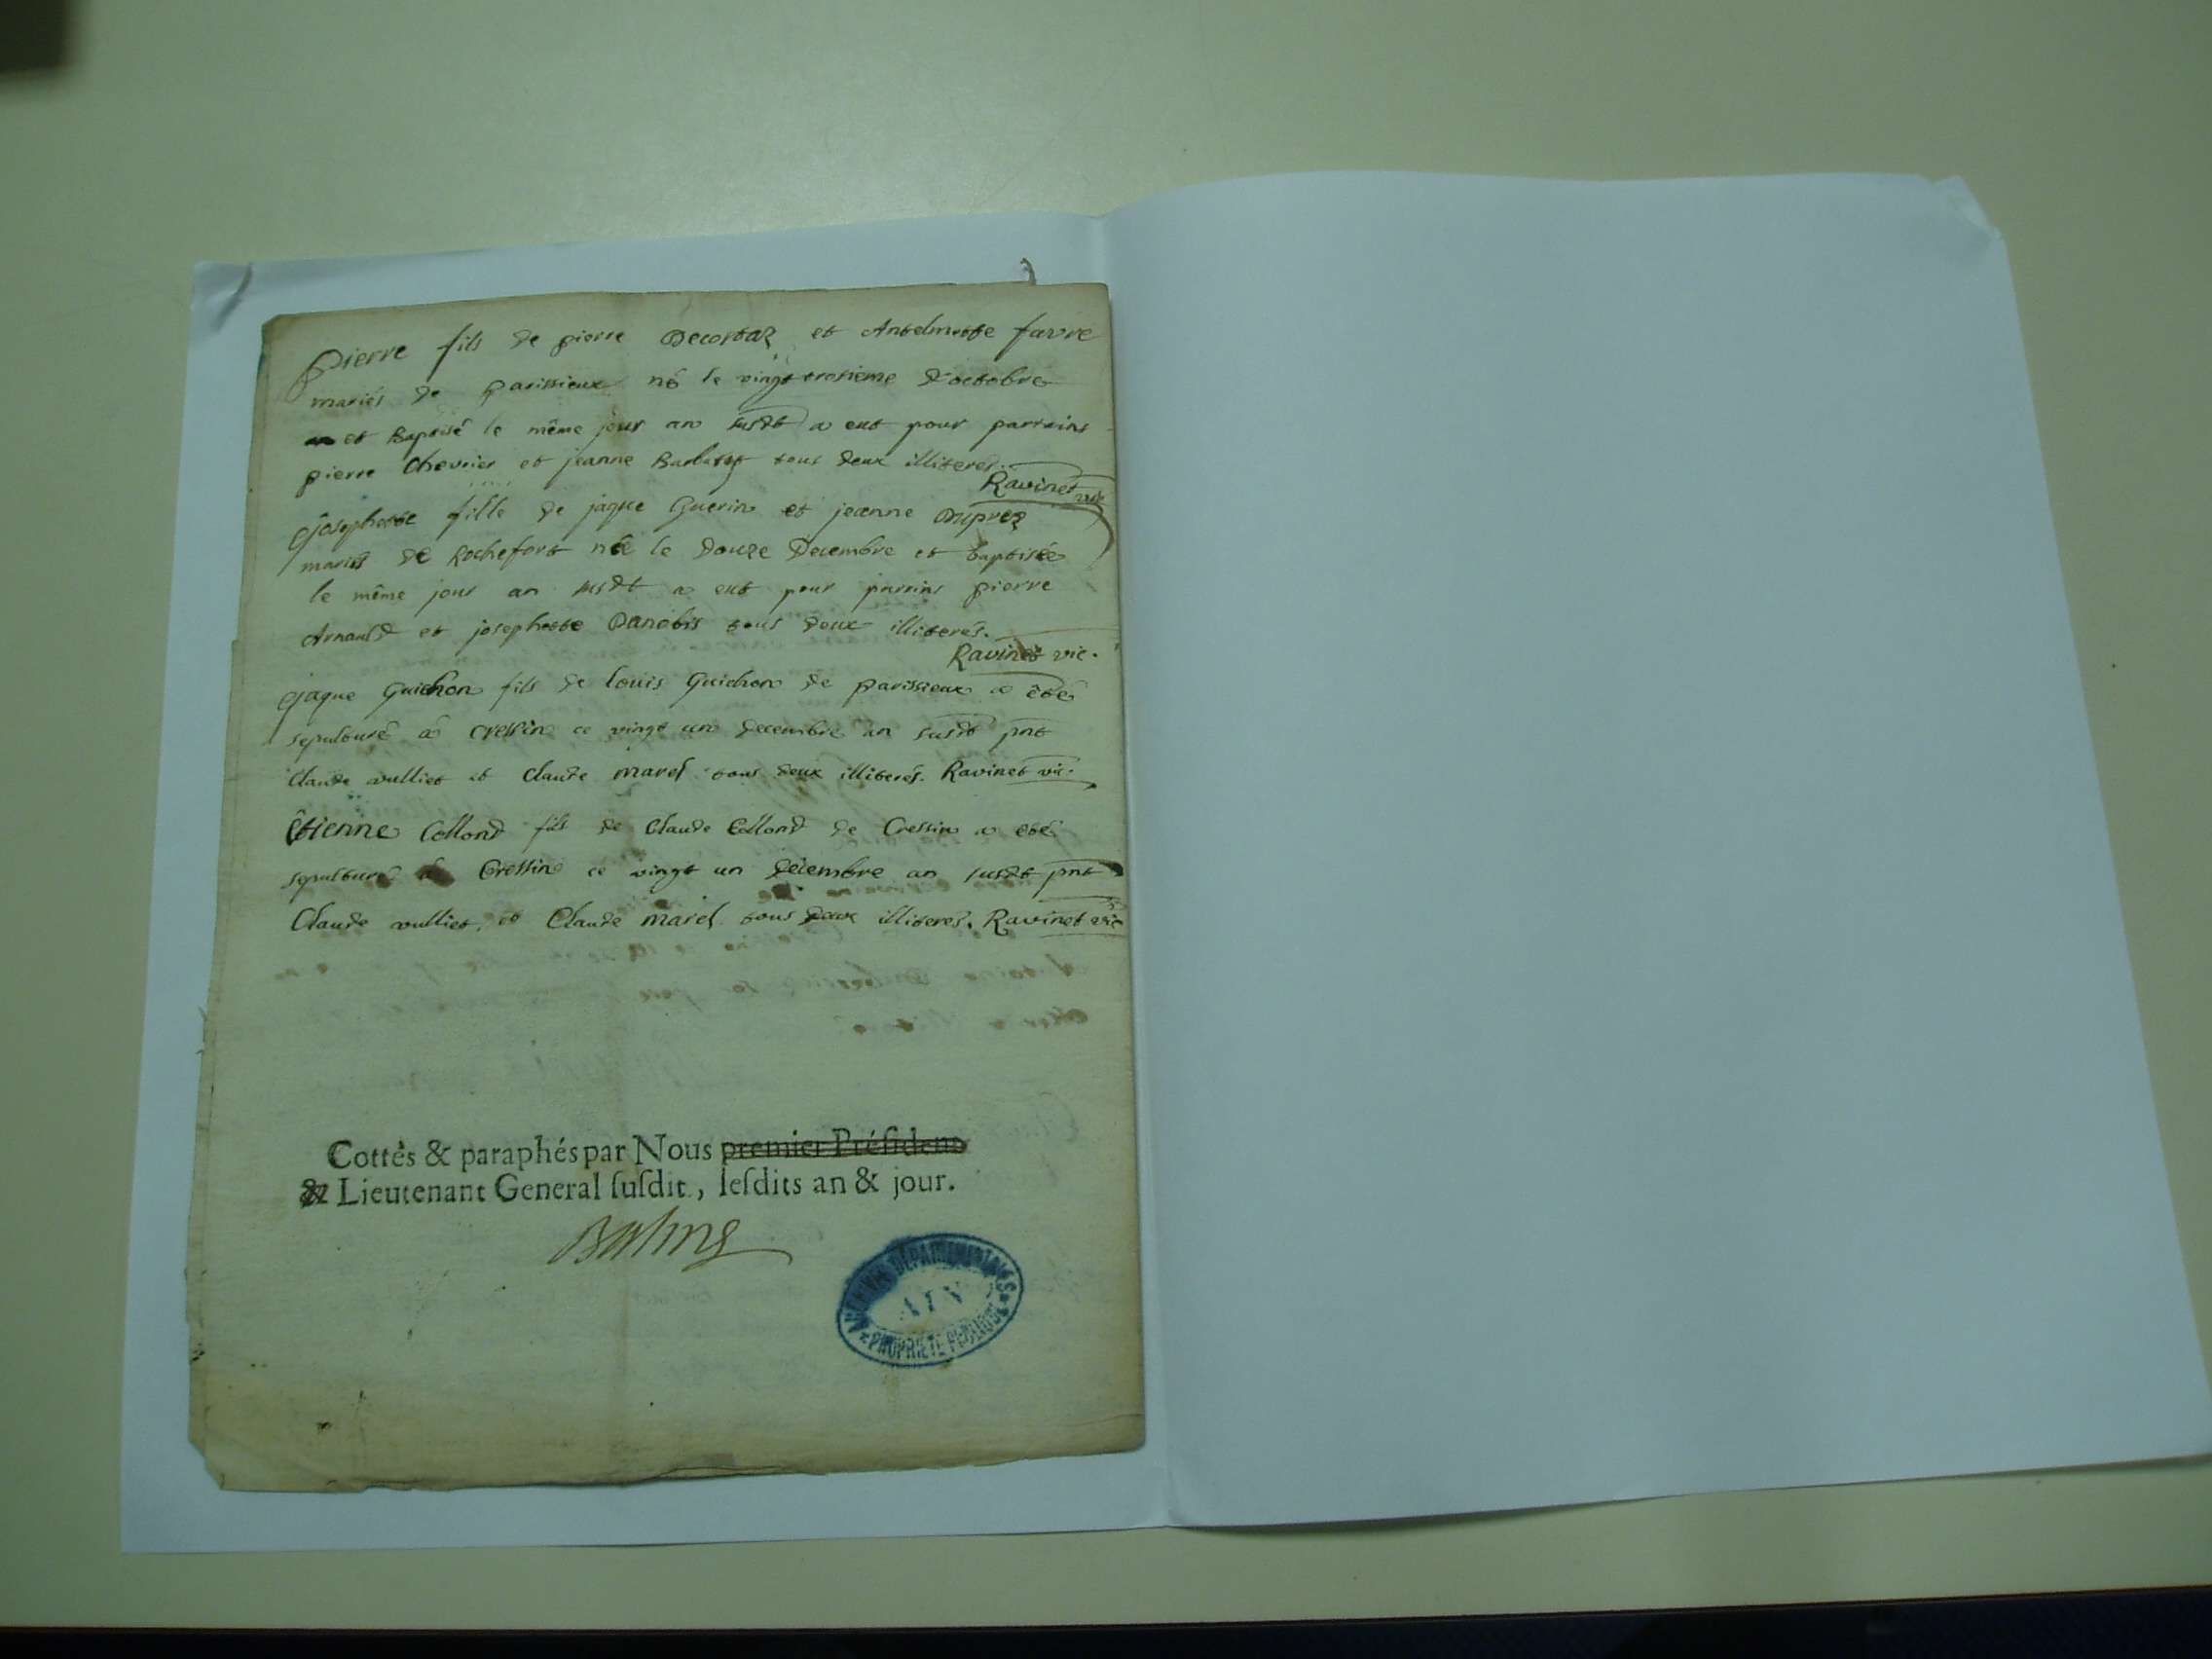 Pierre fils de pierre Decortaz et Antelmette favre
mariés de parissieux né le vingt troisieme d'octobre
et Baptisé le même jour an susdt a eut pour parrains
pierre Chevrier et jeanne tous deux illiterés.
Ravinet vic
josephette fille de jaque Guerin et jeanne Duprez
mariés de Rochefort née le douze Decembre et baptisée
le même jour an susdt a eut pour parains pierre
Arnauld et josephette Danobis tous deux illiterés.
Ravinet vic.
jaque Guichon fils de louis Guichon de parissieux a êté
sepulturé a Cressin ce vingt un decembre an susdt pnt
Claude vulliet et Claude marel tous deux illiterés. Ravinet vic.
êtienne Collond fils de Claude Collond de Cressin a eté
sepulturé à Cressin ce vingt un decembre an susdt pnt
Claude vulliet, et Claude marel tous deux illiterés. Ravinet vic
Cottès & paraphés par Nous premier Préſident
& Lieutenant General ſuſdit, leſdits an & jour.
ARCHIVES DÉPARTEMENTALES
AIN
PROPRIÉTÉ PUBLIQUE